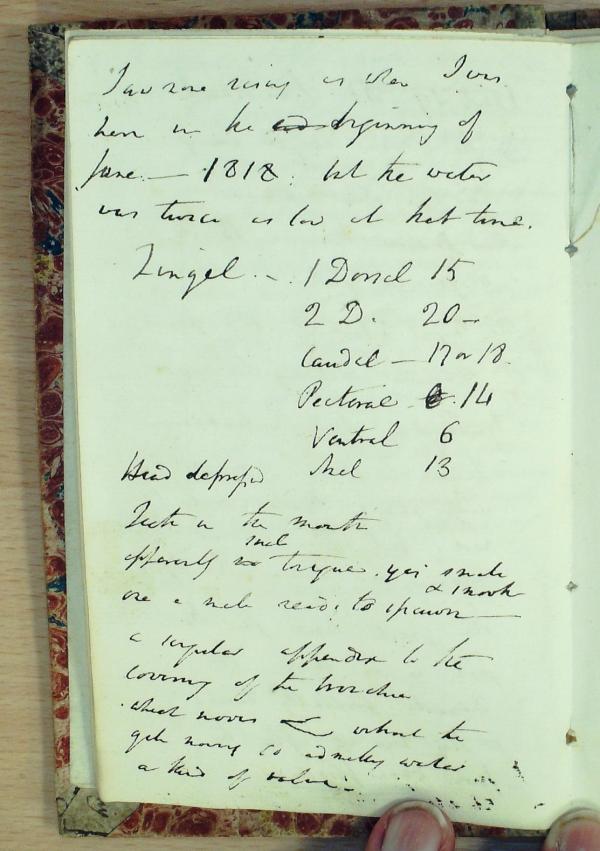 I saw none rising as when I was
here in the beginning of
June. — 1818. but the water
was twice as low at that time.
Zingel. — . 1 Dorsal 15
2 D. 20 —
Caudal — 17 or 18.
Pectoral 14
Ventral 6
Head depressed Anal 13
Teeth in the mouth
small
apparently no tongue. eyes small
& smooth
one a male ready to spawn —
a singular appendix to the
covering of the branchia
which moves without the
gill moving so admitting water
a kind of valve. —